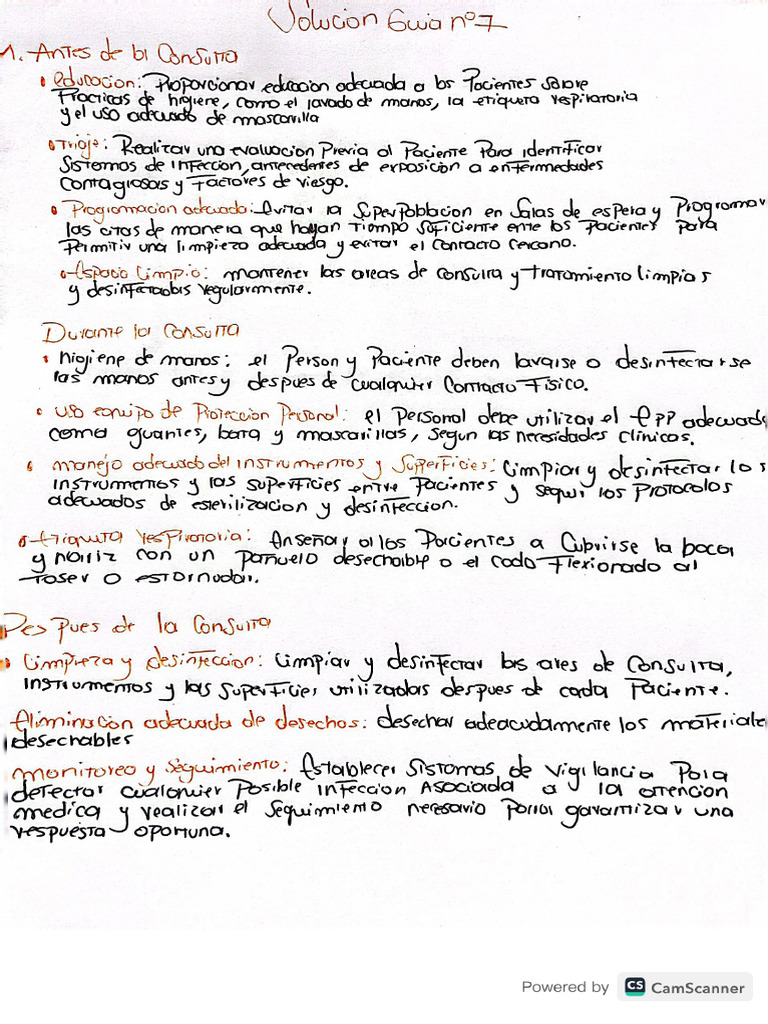 Solucion Guia nº7
1. Antes de la Consulta
• educacion: Proporcionar educacion adecuada a los Pacientes sobre
Practicas de higiene, como el lavado de manos, la etiqueta respiratoria
y el uso adecuado de mascarilla
• Triaje: Realizar una evaluacion Previa al Paciente Para identificar
Sistomas de infeccion, antecedentes de exposicion a enfermedades
Contagiosas y Factores de riesgo.
• Programacion adecuada: Evitar la Superpoblacion en Salas de espera y Programar
las citas de manera que hayan tiempo suficiente ente los Pacientes Para
Permitir una limpieza adecuada y evitar el contacto cercano.
• Espacio Limpio: mantener las areas de consulta y tratamiento limpias
y desinfectadas regularmente.
Durante la Consulta
• hiogiene de manos: el Person y Paciente deben lavarse o desinfectarse
las manos antes y despues de cualquier Contacto Fisico.
• uso equipo de Protección Personal: el Personal debe utilizar el EPP adecuado
como guantes, bata y mascarillas, segun las necesidades clinicas.
• manejo adecuado del instrumentos y Superficies: Limpiar y desinfectar los
instrumentos y las superficies entre Pacientes y seguir los Protocolos
adecuados de esterilizacion y desinfeccion.
• Etiqueta respiratoria: Enseñar a los Pacientes a Cubrirse la boca
y nariz con un Pañuelo desechable o el codo Flexionado al
toser o estornudar.
Despues de la Consulta
• Limpieza y desinfeccion: Limpiar y desinfectar las ares de Consulta,
instrumentos y las superficies utilizadas despues de cada Paciente.
Eliminacion adecuada de desechos: desechar adeacudamente los materiale
desechables
monitoreo y Seguimiento: Establecer Sistomas de Vigilancia Para
detectar cualquier Posible infeccion Asociada a la atencion
medica y realizar el Seguimiento necesario Para garantizar una
respuesta oportuna.
Powered by CS CamScanner